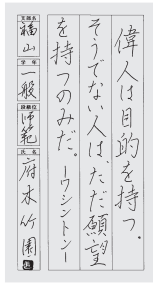 偉人は目的を持つ。
そうでない人は、ただ願望
を持つのみだ。ーワシントンー
支部名
福山
学年
一般
段級位
師範
氏名
府木竹園